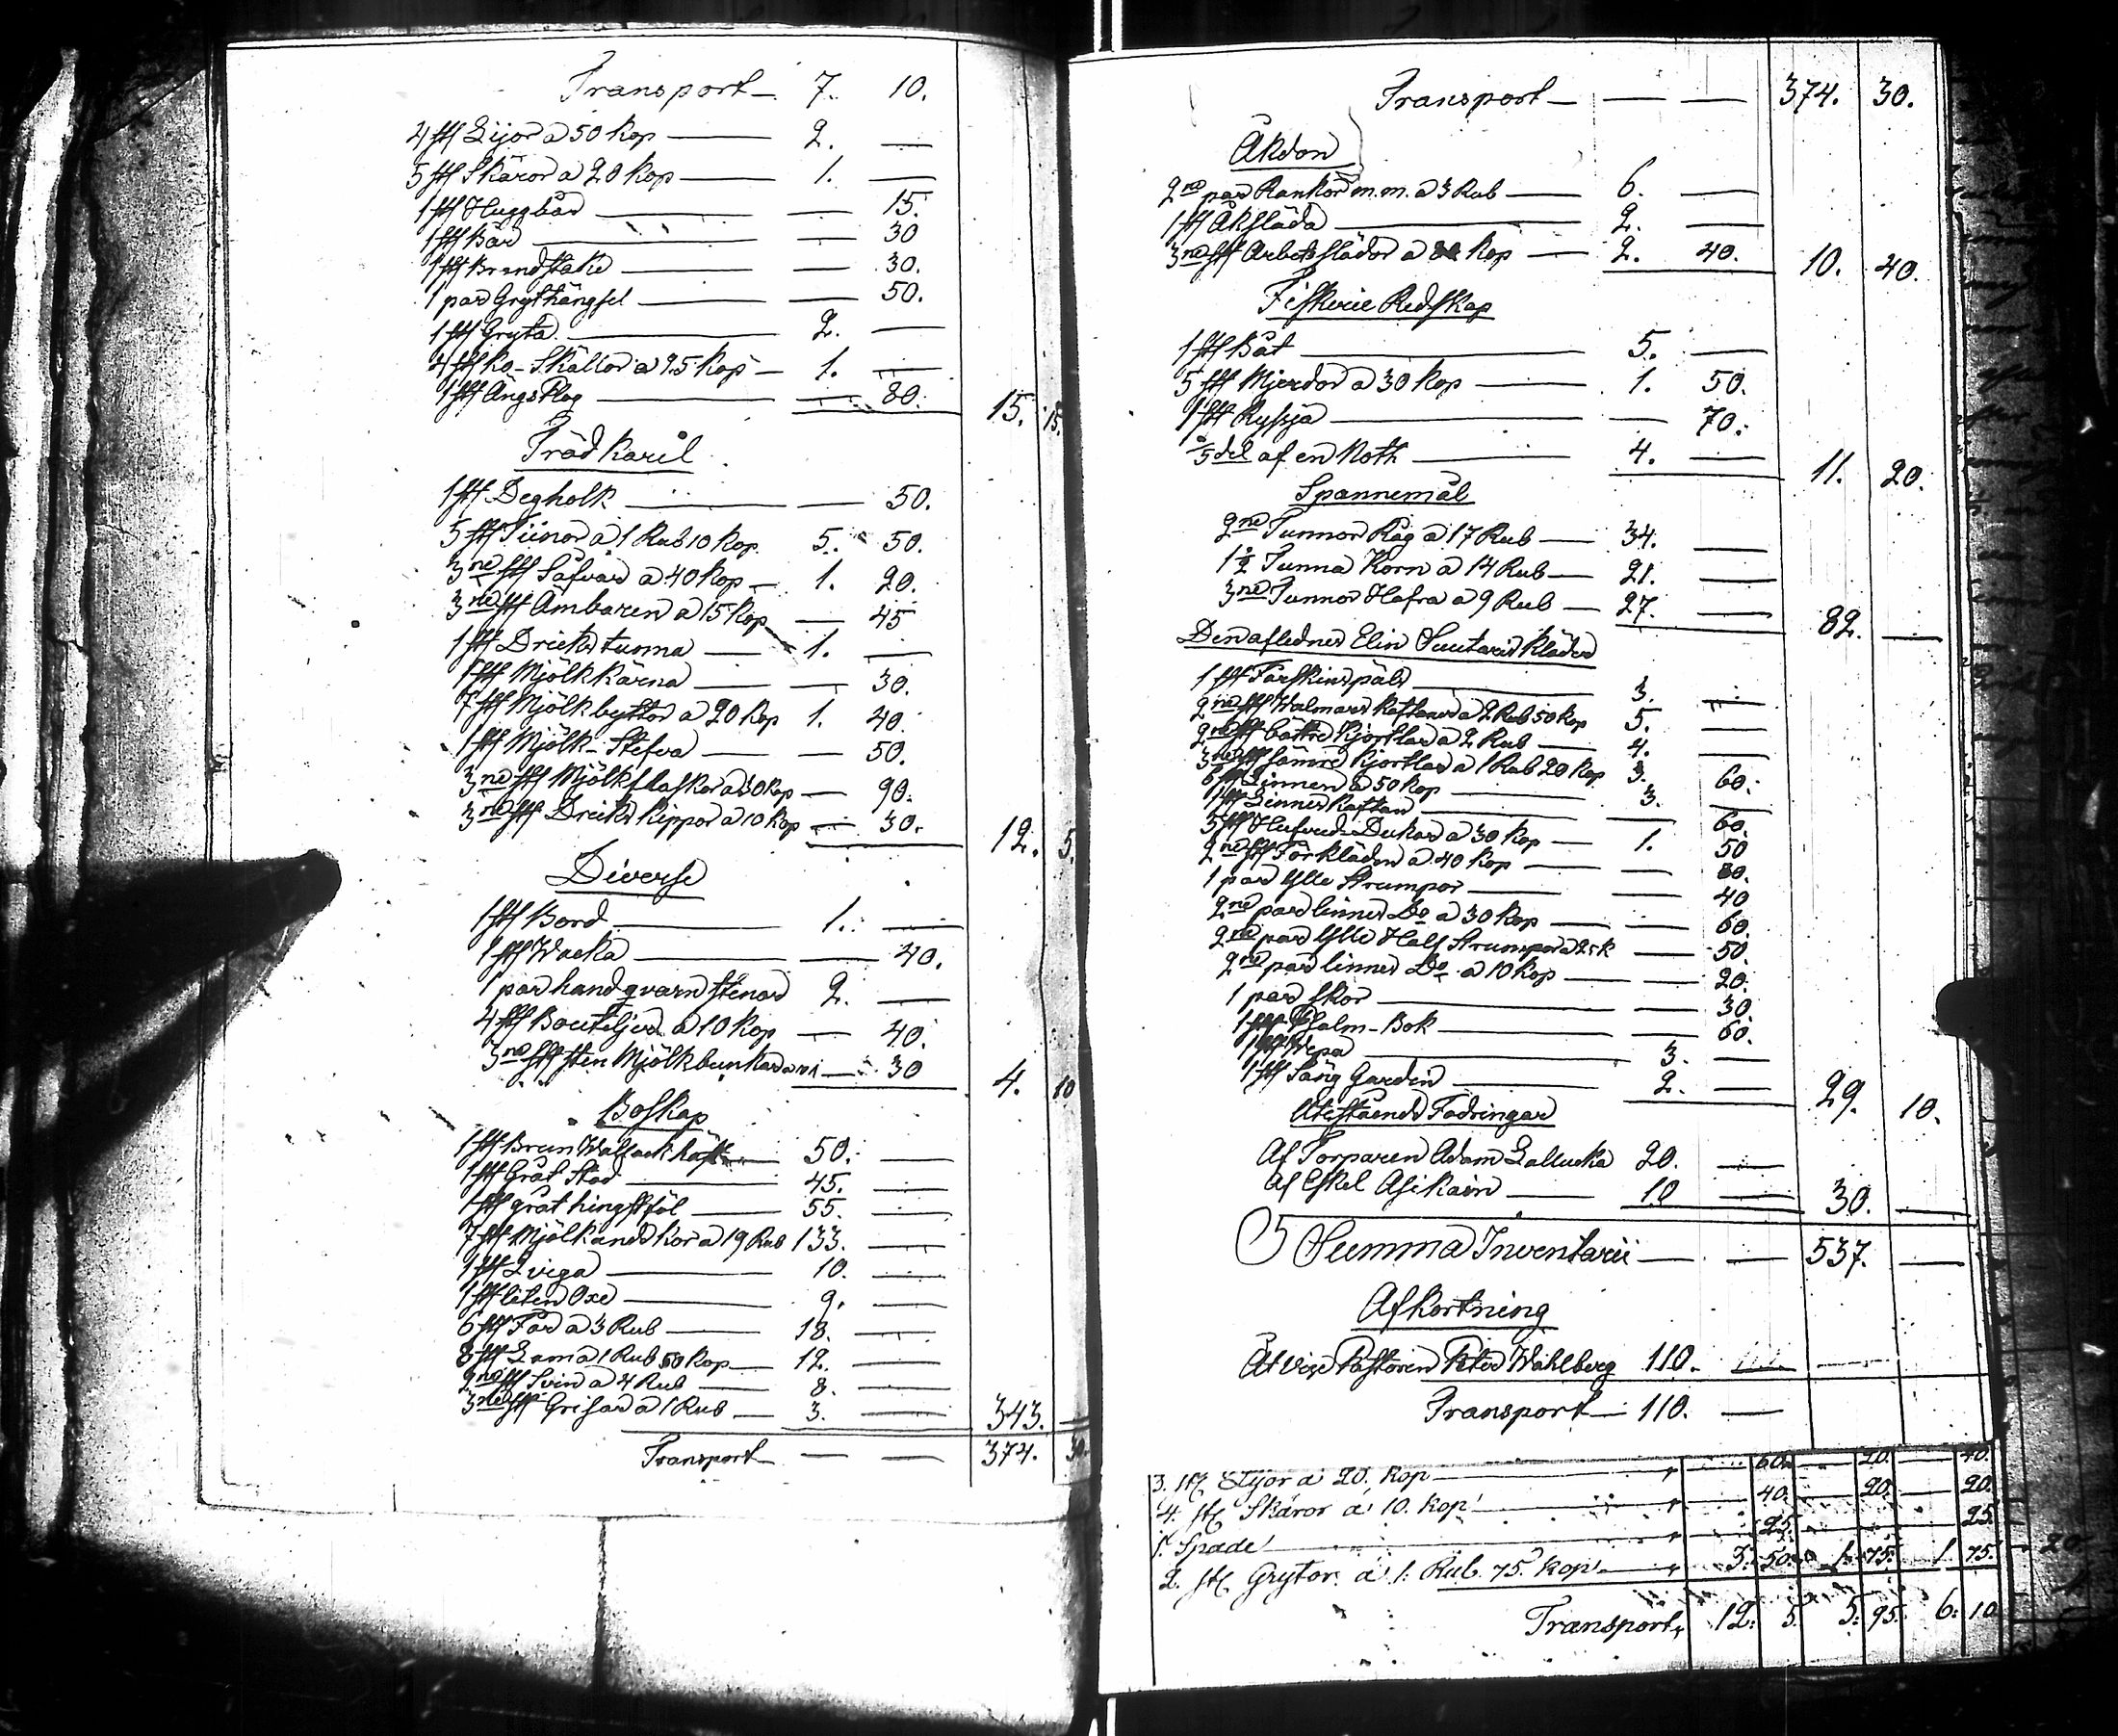 Transport — 7. 10.
4 st Lijor a 50 Kop — 2. —
5 st Skäror a 20 Kop — 1. —
1 st Huggbår — — 15.
1 st Bår — — 30
1 st Brandstake — — 30.
1 par Grythängsel — — 50.
1 st Gryta — 2. —
4 st Ko-Skällor a 25 Kop — 1. —
1 st Ängs Plog — — 80. 15. 15.
Trädkäril
1 st Degholk — — 50.
5 st Tiinor a 1 Rub 10 Kop. 5. 50.
3ne st Såfvar a 40 Kop — 1. 20.
3ne st Ämbaren a 15 Kop — 45
1 st Dricks tunna — 1. —
1 st Mjölkkärna — — 30.
7 st Mjölkbyttor a 20 Kop 1. 40.
1 st Mjölk-Stefva — — 50.
3ne st Mjölkflaskor a 30 Kop — 90.
3ne st Dricks Kippor a 10 Kop — 30. 12. 5.
Diverse
1 st Bord — 1. —
1 st Wacka — — 40.
1 par handqvarn stenar 2. —
4 st Bouteljer a 10 Kop — 40.
3ne st sten Mjölkbunkar — 30 4. 10
Boskap
1 st Brun Wallack häst — 50. —
1 st Gråt Stod — 45. —
1 st gråt hingstföl — 55. —
7 st Mjölkande Kor a 19 Rub 133. —
1 st Qviga — 10. —
1 st liten Oxe — 9. —
6 st Får a 3 Rub — 18. —
8 st Lam a 1 Rub 50 Kop — 12. —
2ne st Svin a 4 Rub — 8. —
3ne st Grisar a 1 Rub — 3. — 343. —
Transport — — 374. 30.
Transport — — — 374. 30.
Åkdon
2ne par Rankor m.m. a 3 Rub — 6. —
1 st Åksläda — 2. —
3ne st Arbetsslädor a 80 Kop — 2. 40. 10. 40.
Fiskerie Redskap
1 st Båt — 5. —
5 st Mjerdor a 30 Kop — 1. 50.
1 st Ryssja — — 70.
del af en Noth — 4. — 11. 20.
Spannemål
2ne Tunnor Råg a 17 Rub — 34. —
1½ Tunna Korn a 14 Rub — 21. —
3ne Tunnor Hafra a 9 Rub — 27. — 82. —
Den aflednes Elin Kläder
1 st Fårskinspäls — 3. —
2ne st Walmars Kaftaner a 2 Rub 50 Kop 5. —
2ne st bättre Kjortlar a 2 Rub — 4. —
3ne st sämre Kjortlar a 1 Rub 20 Kop 3. 60.
6 st Linnen a 50 Kop — 3. —
1 st Linnes Kaftan — — 60.
5 st Hufvud-Dukar a 30 Kop — 1. 50
2ne st Förkläden a 40 Kop — — 80.
1 par Ylle Strumpor — — 40
2ne par linnes Do a 30 Kop — — 60.
2ne par Ylle Half Strumpor a 25 K — 50.
2ne par linnes Do a 10 Kop — — 20.
1 par Skor — — 30.
1 st Psalm-Bok — — 60.
1 st Wepa — 3. —
1 st Säng Gardin — 2. — 29. 10.
Utestående Fodringar
Af Torparen Adam Lallucka 20. —
Af Eskel Asikain — 10 — 30. —
Summa Inventarii — — 537. —
Afkortning
Åt Vice Pastoren Peter Wahlberg 110. — —
Transport — 110. —
3. st Lijor a 20. Kop — 60. — 20. — 40.
4. st Skäror a 10. Kop — 40. — 20. — 20.
1. Spade — 25. 25.
2. st Grytor. a 1. Rub. 75. Kop — 3. 50. 1. 75. 1. 75.
Transport, 12. 5. 5. 95. 6. 10